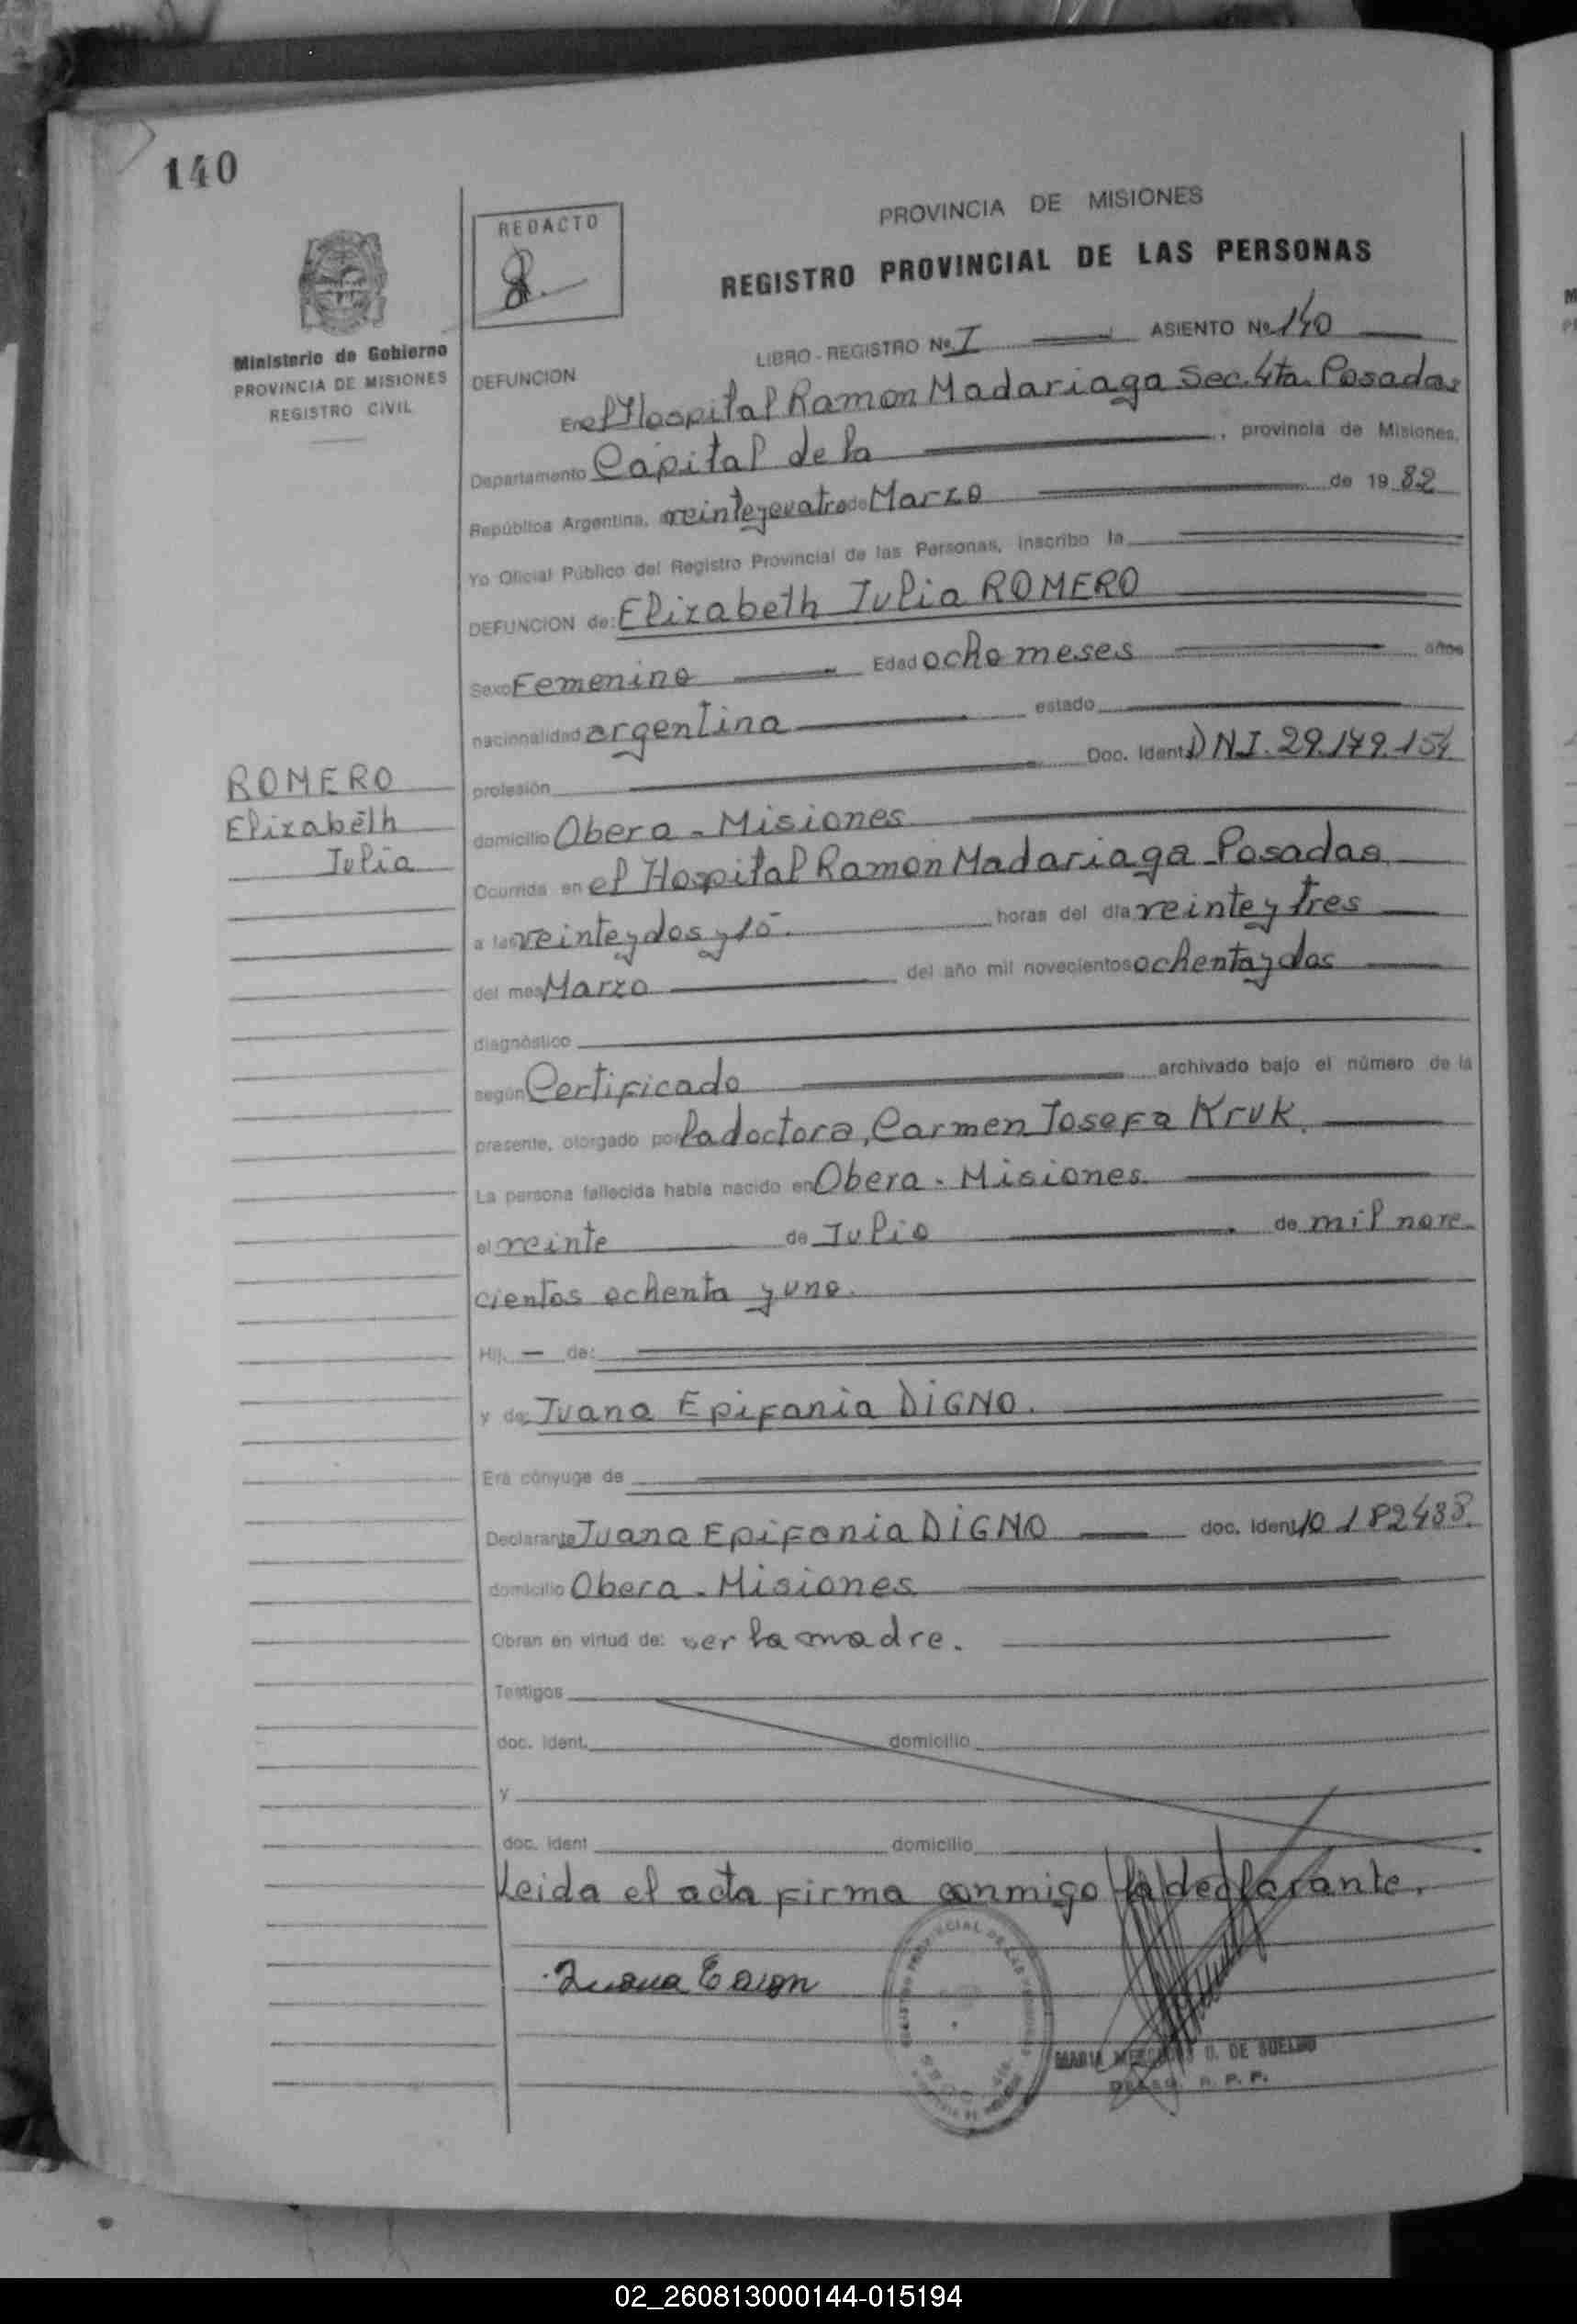 140
REDACTO
PROVINCIA DE MISIONES
REGISTRO PROVINCIAL DE LAS PERSONAS
Ministerio de Gobierno
PROVINCIA DE MISIONES
REGISTRO CIVIL
LIBRO - REGISTRO Nº I ASIENTO Nº 140
DEFUNCION
En el Hospital Ramon Madariaga Sec. 4ta. Posadas
Departamento Capital de la , provincia de Misiones,
República Argentina, a veinteycuatro de Marzo de 19 82
Yo Oficial Público del Registro Provincial de las Personas, inscribo la
DEFUNCION de: Elizabeth Julia ROMERO
Sexo Femenino Edad ocho meses años
nacionalidad argentina estado
profesión Doc. Ident. DNI. 29.179.154
ROMERO
Elizabeth
Julia
domicilio Obera - Misiones
Ocurrida en el Hospital Ramon Madariaga - Posadas
a las veinteydos y 15. horas del día veinte y tres
del mes Marzo del año mil novecientos ochentaydos
diagnóstico
según Certificado archivado bajo el número de la
presente, otorgado por la doctora, Carmen Josefa Kruk.
La persona fallecida había nacido en Obera - Misiones.
el veinte de Julio de mil nove-
cientos ochenta y uno.
Hij. — de:
y de: Juana Epifania DIGNO.
Era cónyuge de
Declarante Juana Epifania DIGNO doc. Ident. 10182488.
domicilio Obera - Misiones
Obran en virtud de: ser la madre.
Testigos
doc. Ident. domicilio
y
doc. Ident domicilio
Leida el acta firma conmigo la declarante.
Juana E
MARIA DE
02_260813000144-015194